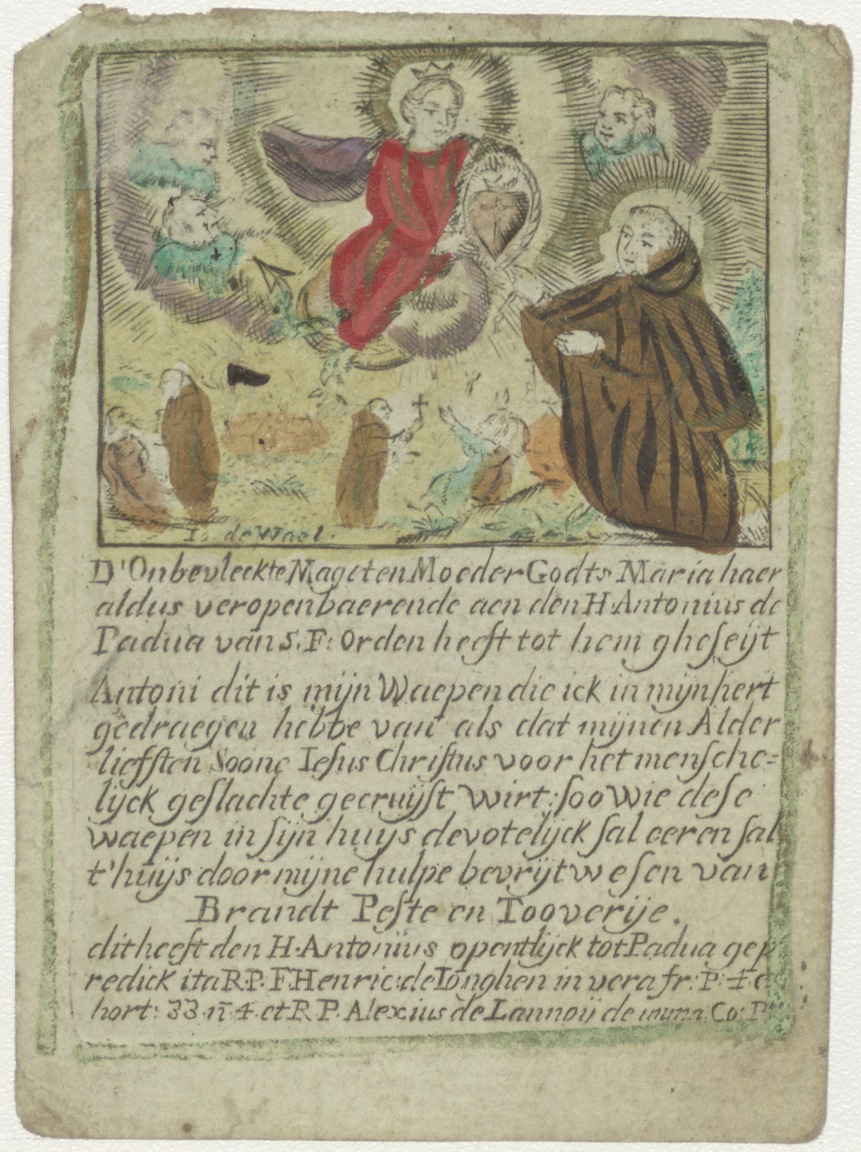 I. de Wael.
D'Onbevleckte Maget en Moeder Godts Maria haer
aldus veropenbaerende aen den H. Antonius de
Padua van S. F: Orden heeft tot hem gheſeijt
Antoni dit is mijn Waepen die ick in mijn hert
gedraegen hebbe van als dat mijnen Alder
liefften Soone Ieſus Chriſtus voor het menſche=
lijck geſlachte gecruijſt wirt; ſoo wie deſe
waepen in ſijn huijs devotelijck ſal eeren ſal
t'huijs door mijne hulpe bevrijt weſen van
Brandt Peſte en Tooverije.
dit heeft den H. Antonius opentlijck tot Padua gep
redickt ita R.P. F. Henric: de Iònghen in vera fr: P: 4
hort: 33 n 4. et R P. Alexius de Lannoij de Co: